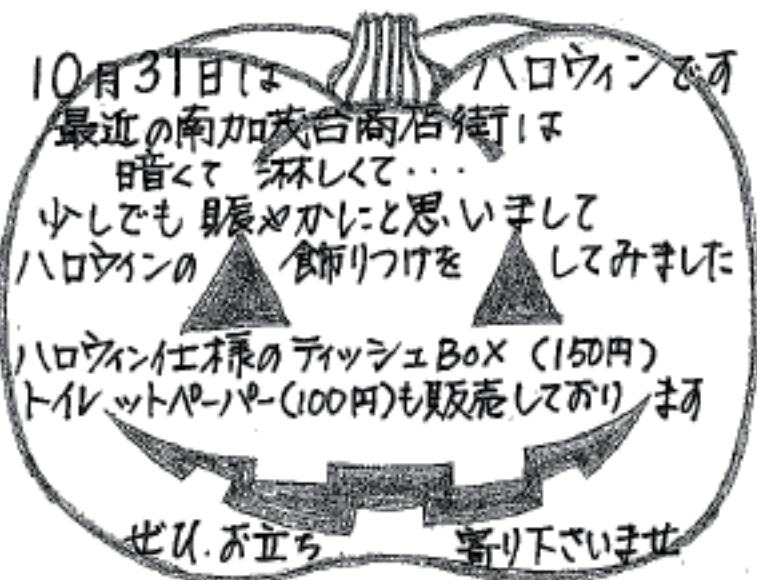 10月31日は ハロウィンです
最近の南加茂台商店街は
暗くて 淋しくて・・・
少しでも賑やかにと思いまして
ハロウィンの 飾りつけを してみました
ハロウィン仕様のティッシュBOX (150円)
トイレットペーパー(100円)も販売しております
ぜひ、お立ち 寄り下さいませ